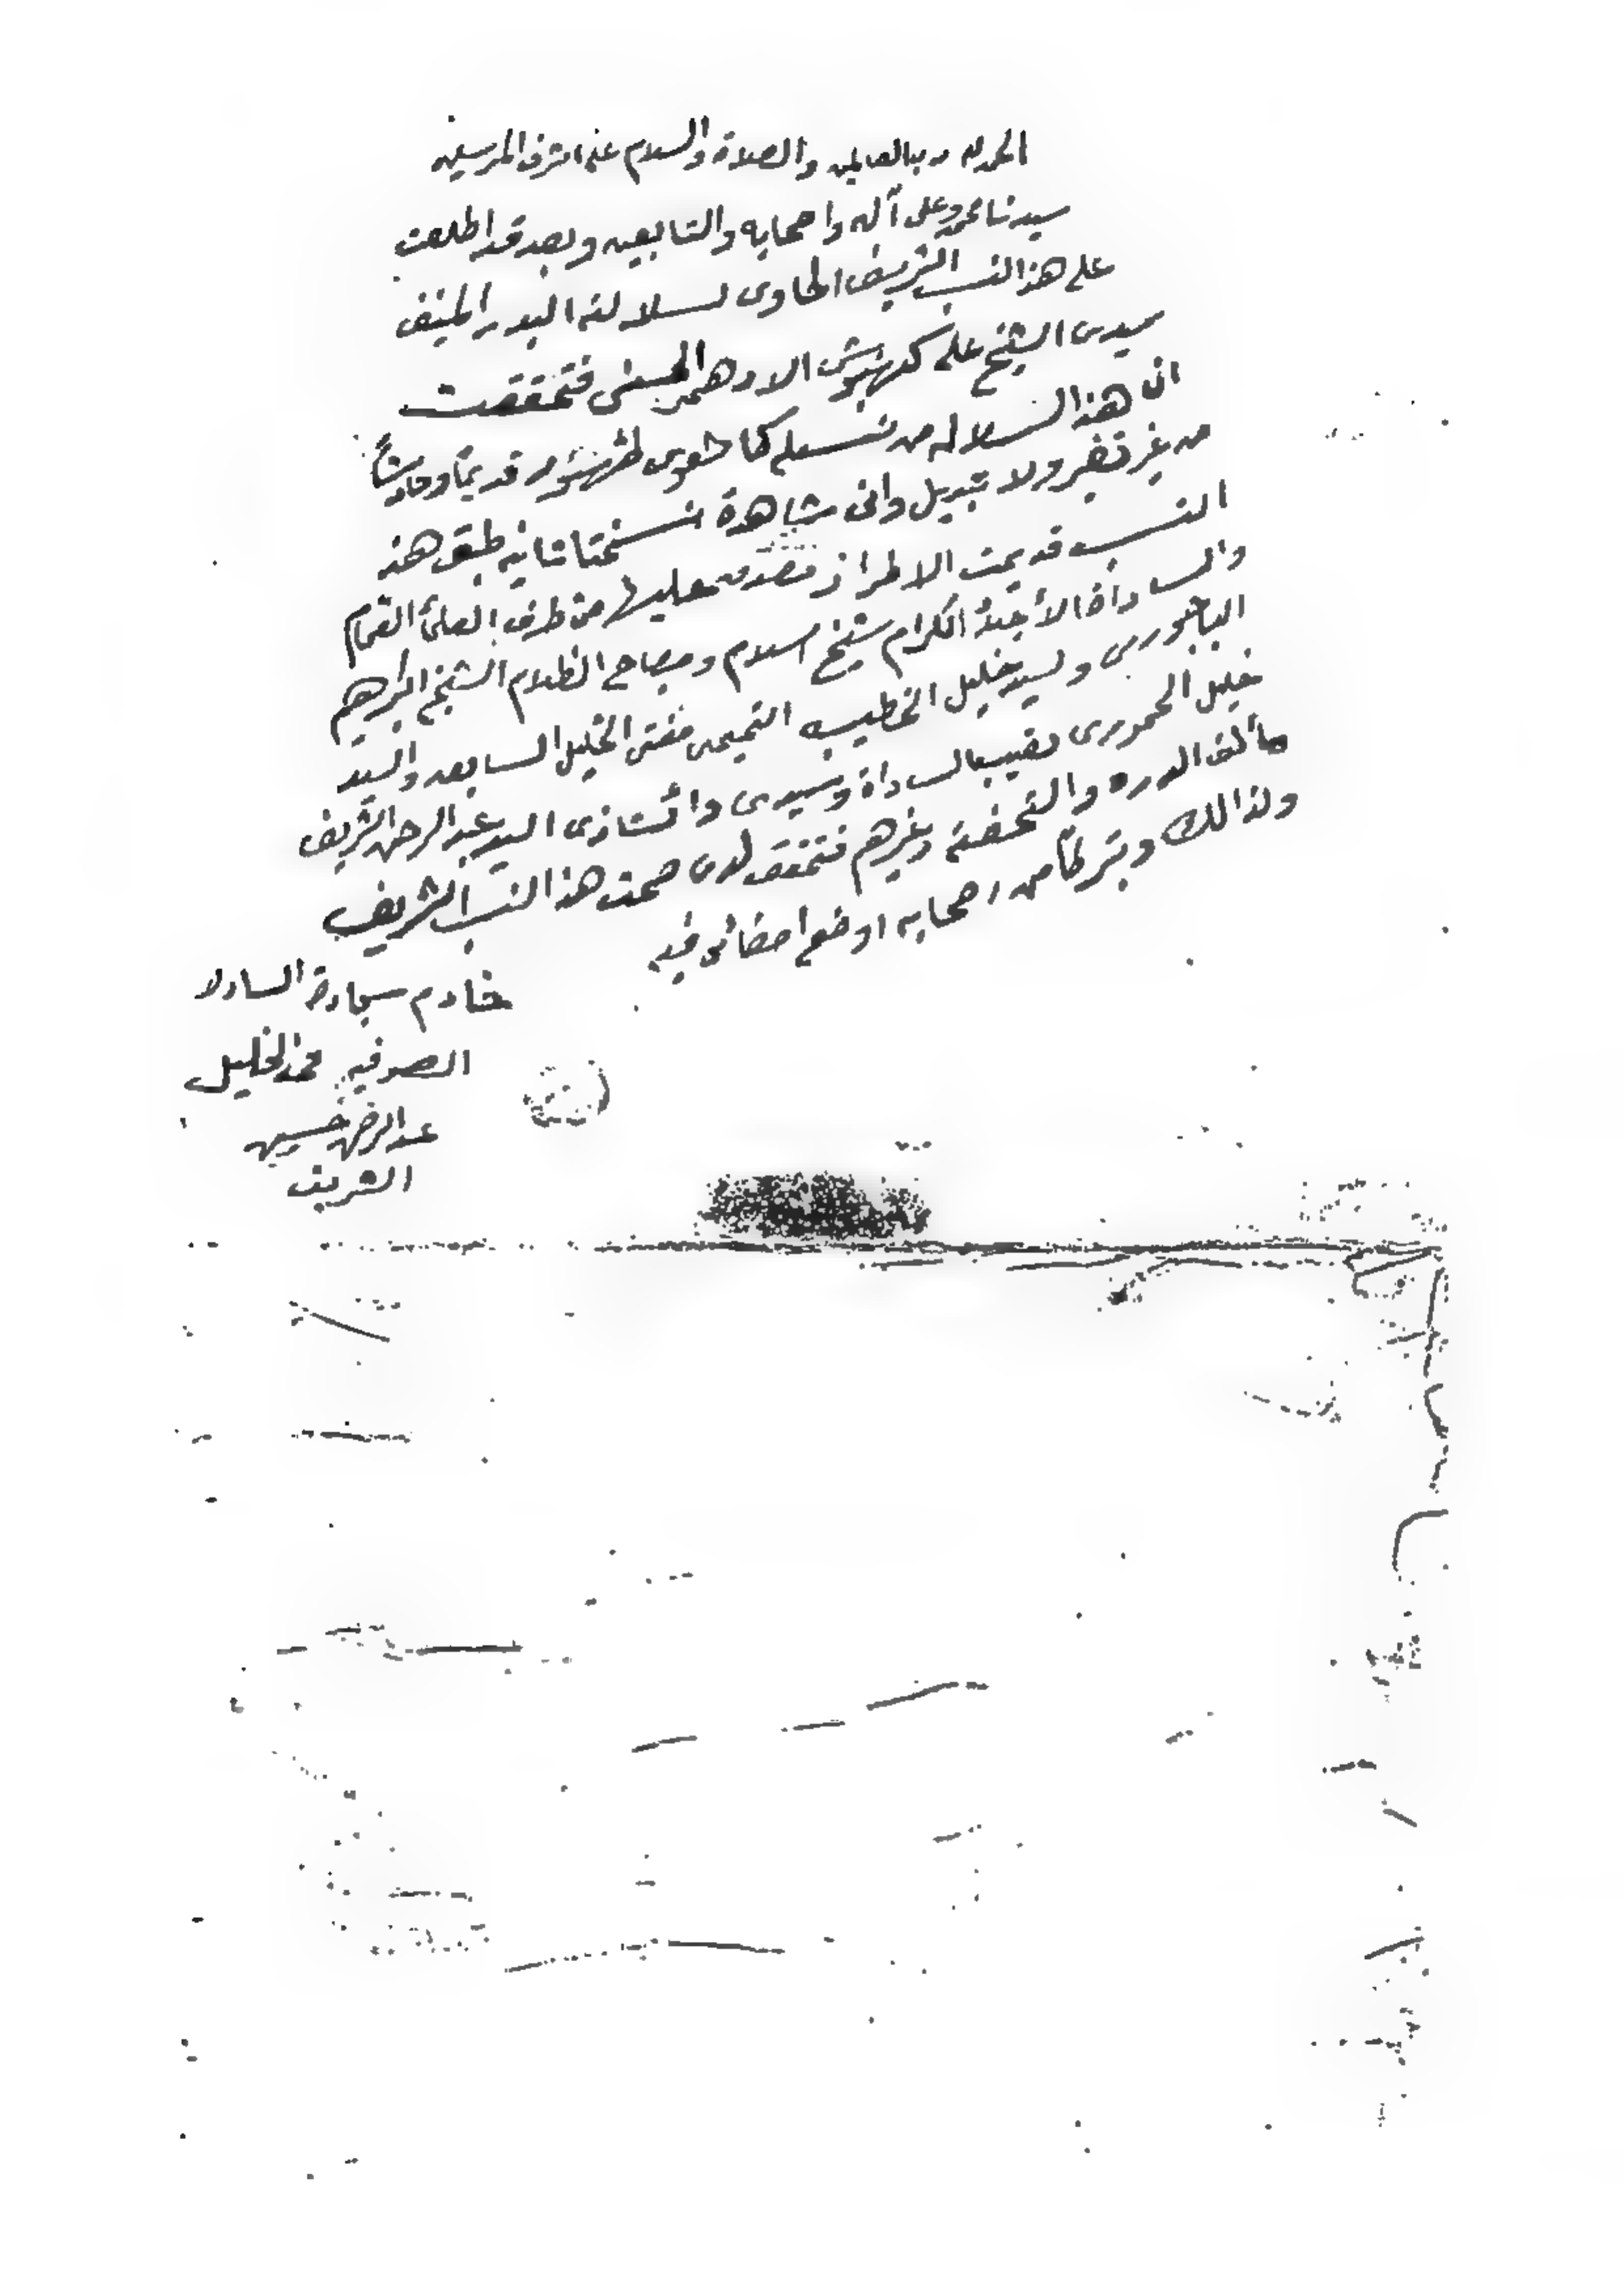 الحمد لله رب العالمين والصلاة والسلام على اشرف المرسلين
سيدنا محمد وعلى آله واصحابه والتابعين وبعد قد اطلعت
على هذا النسب الشريف الحاوى لسلالة البدر المنيف
سيدى الشيخ على الادهمى الحسينى فتحققت
ان هذا السلاله من نسله كما قديمًا وحادثاً
من غير تغير ولا تبديل وانى شاهدة نسختا ثانيه طبق هذه
النسب قديمت الاطراز مصدق عليها من طرف العلمأ
والساداة الأجلة الكرام شيخ اسلام ومصباح الظلام الشيخ ابراهيم
الباجورى ولسيد خليل الخطيب التميمى مفتى الخليل السابعه والسيد
خليل الحمورى نقيب الساداة وسيدى وأستاذى السيد عبدالرحمن الشريف
مألف الدره والتحفة وغيرهم فتحقق لدى صحت هذا النسب الشريف
ولذالك وتبركًا من اصحابه اوضع امضائى فيه
خادم سجادة الساده
الصوفيه محمد الخليل
عبدالرحمن حسين
الشريف